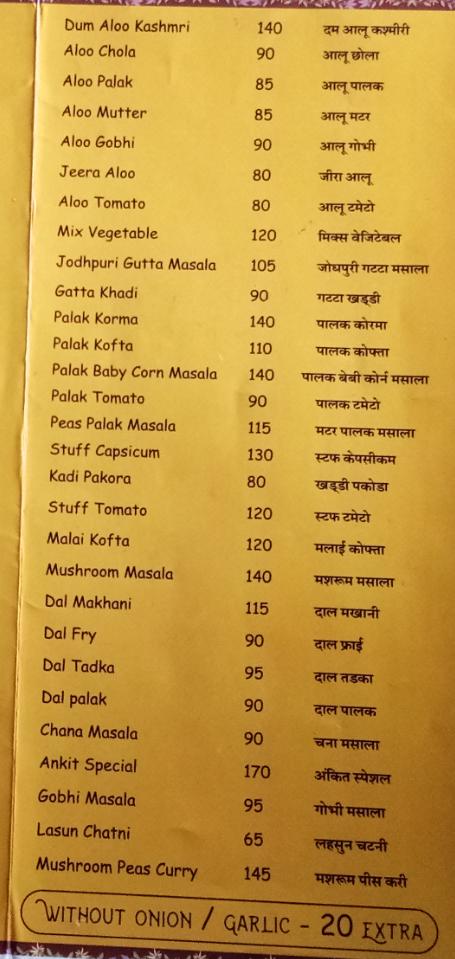 Dum Aloo Kashmri 140 दम आलू कश्मीरी
Aloo Chola 90 आलू छोला
Aloo Palak 85 आलू पालक
Aloo Mutter 85 आलू मटर
Aloo Gobhi 90 आलू गोभी
Jeera Aloo 80 जीरा आलू
Aloo Tomato 80 आलू टमेटो
Mix Vegetable 120 मिक्स वेजिटेबल
Jodhpuri Gutta Masala 105 जोधपुरी गटटा मसाला
Gatta Khadi 90 गटटा खड्डी
Palak Korma 140 पालक कोरमा
Palak Kofta 110 पालक कोफ्ता
Palak Baby Corn Masala 140 पालक बेबी कोर्न मसाला
Palak Tomato 90 पालक टमेटो
Peas Palak Masala 115 मटर पालक मसाला
Stuff Capsicum 130 स्टफ केपसीकम
Kadi Pakora 80 खड्डी पकोडा
Stuff Tomato 120 स्टफ टमेटो
Malai Kofta 120 मलाई कोफ्ता
Mushroom Masala 140 मशरूम मसाला
Dal Makhani 115 दाल मखानी
Dal Fry 90 दाल फ्राई
Dal Tadka 95 दाल तडका
Dal palak 90 दाल पालक
Chana Masala 90 चना मसाला
Ankit Special 170 अंकित स्पेशल
Gobhi Masala 95 गोभी मसाला
Lasun Chatni 65 लहसुन चटनी
Mushroom Peas Curry 145 मशरूम पीस करी
WITHOUT ONION / GARLIC - 20 EXTRA